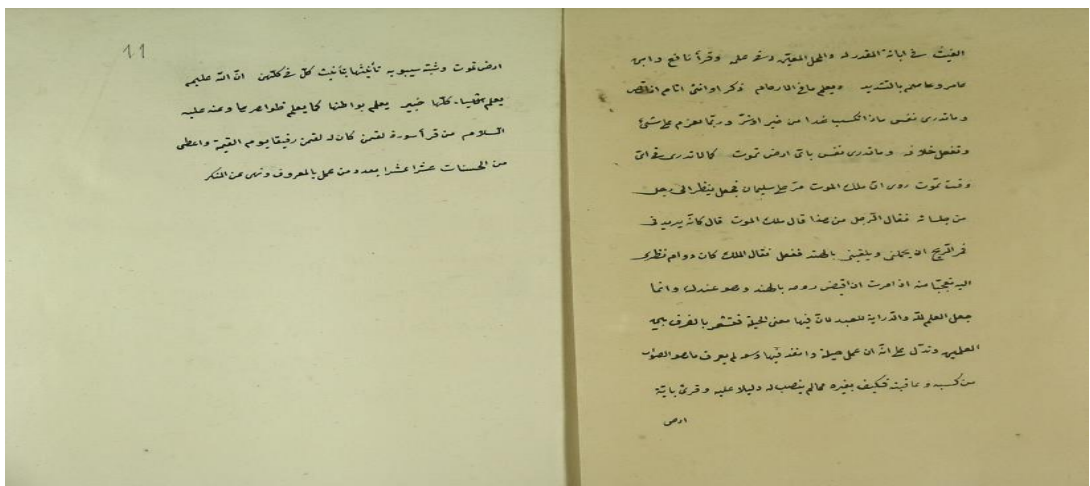 الغيث في ابانه المقدر له والمحل المعين له في علمه وقرأ نافع وابن
عامر وعاصم بالتشديد ويعلم ما في الارحام ذكر او انثى اتام ام ناقص
وما تدرى نفس ماذا تكسب غدا من خير او شر وربما تعزم على شئ
وتفعل خلافه وما تدرى نفس باى ارض تموت كما لا تدرى في اى
وقت تموت روى ان ملك الموت مر على سليمان فجعل ينظر الى رجل
من جلسائه فقال الرجل من هذا قال ملك الموت قال كانه يريدنى
فمر الريح ان يحملنى ويلقينى بالهند ففعل فقال الملك كان دوام نظرى
اليه تعجبا منه اذ امرت ان اقبض روحه بالهند وهو عندك وانما
جعل العلم لله والدراية للعبد لان فيها معنى الحيلة فتشعر بالفرق بين
العلمين وتدل على انه ان عمل حيلة وانفذ فيها وسعه لم يعرف ما هو الصواب
من كسبه وعاقبته فكيف بغيره مما لم ينصب له دليلا عليه وقرئ باية
ارض
11
ارض تموت وشبه سيبويه تأنيثها بتأنيث كل في كلتهن ان الله عليم
يعلم الاشياء كلها خبير يعلم بواطنها كما يعلم ظواهرها وعنه عليه
السلام من قرأ سورة لقمن كان له لقمن رفيقا يوم القيمة واعطى
من الحسنات عشرا عشرا بعدد من عمل بالمعروف ونهى عن المنكر